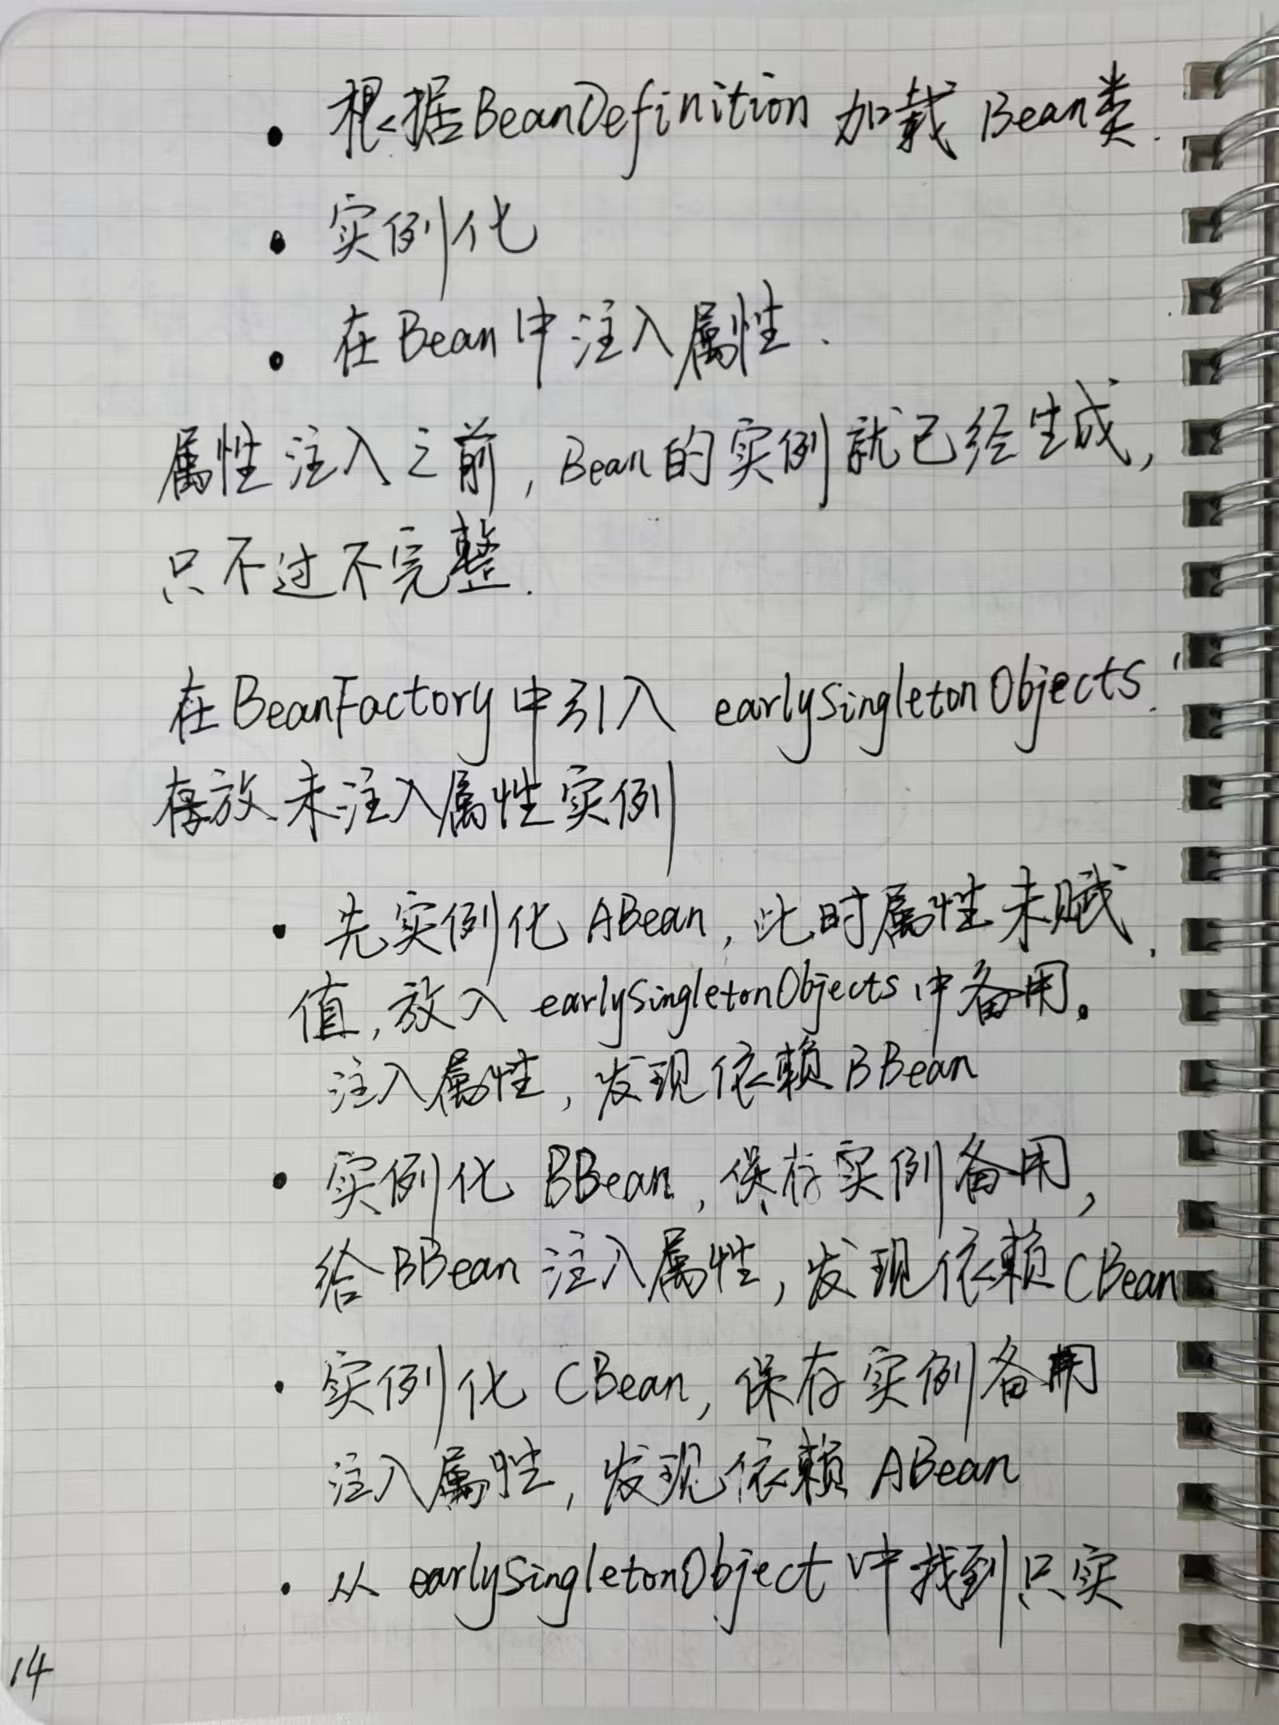 · 根据BeanDefinition 加载 Bean类.
· 实例化
· 在Bean中注入属性.
属性注入之前, Bean的实例就已经生成,
只不过不完整.
在BeanFactory中引入 earlySingletonObjects.
存放未注入属性实例
· 先实例化 ABean, 此时属性未赋
值, 放入 earlySingletonObjects中备用。
注入属性, 发现依赖BBean
· 实例化 BBean, 保存实例备用,
给BBean 注入属性, 发现依赖CBean
· 实例化 CBean, 保存实例备用
注入属性, 发现依赖 ABean
· 从 earlySingletonObject 中找到只实
14